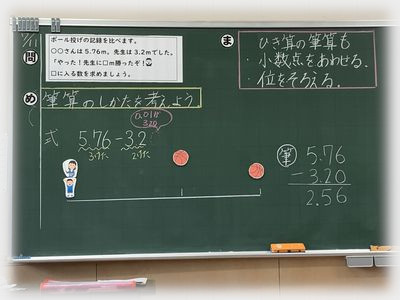 問
ボール投げの記録を比べます。
○○さんは5.76m。先生は3.2mでした。
「やった！先生に□m勝ったぞ！
□に入る数を求めましょう。
ま
ひき算の筆算も
・小数点をあわせる。
・位をそろえる。
め
筆算のしかたを考えよう。
0.01が
320
式 5.76-3.2
3けた 2けた
筆
5.76
-3.20
2.56